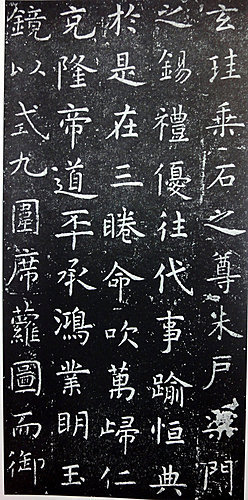 玄珪乘石之尊朱戶渠門
之錫禮優往代事踰恒典
於是在三睠命吹萬歸仁
克隆帝道丕承鴻業明玉
鏡以式九圍席蘿圖而御